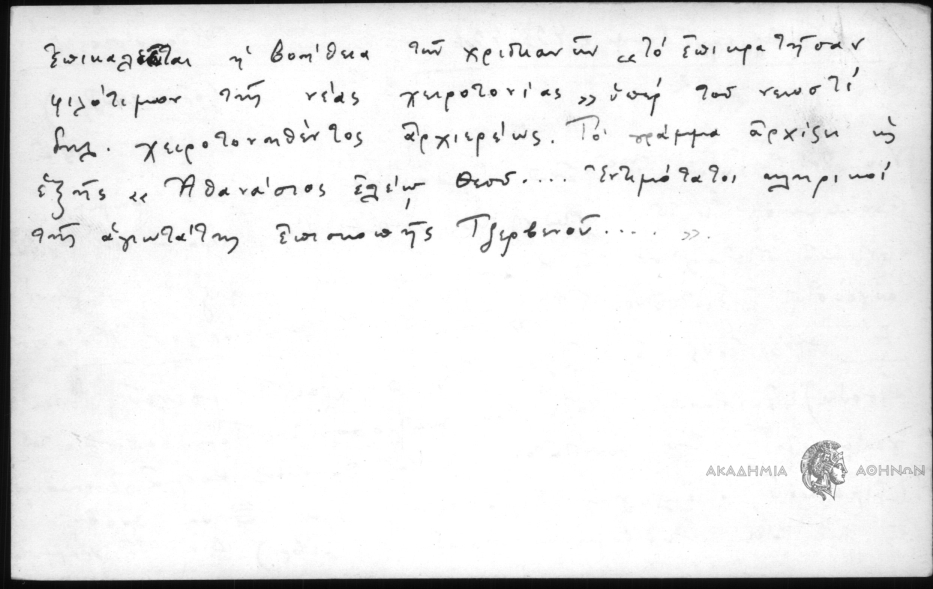 ἐπικαλεῖται ἡ βοήθεια τῶν χριστιανῶν «τὸ ἐπικρατῆσαν
φιλότιμον τῆς νέας χειροτονίας» ὑπὲρ τοῦ νεωστὶ
δηλ. χειροτονηθέντος ἀρχιερέως. Τὸ γράμμα ἀρχίζει ὡς
ἑξῆς «Ἀθανάσιος ἐλέῳ Θεοῦ.... Ἐντιμότατοι κληρικοὶ
τῆς ἁγιωτάτης ἐπισκοπῆς Τζερβενοῦ.... ».
ΑΚΑΔΗΜΙΑ ΑΘΗΝΩΝ